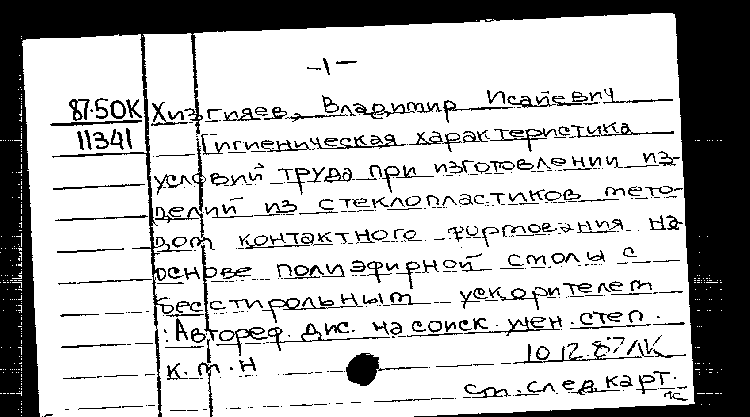 -1-
87-5ОК Хизгияев, Владимир Исаевич
11341 Гигиеническая характеристика
условий труда при изготовлении из-
делий из стеклопластиков мето-
дом контактного формования на
основе полиэфирной смолы с
бесстирольным ускорителем
: Автореф. дис. на соиск. учен. степ.
к. м. н
10 12 87 ЛК
см. след карт.